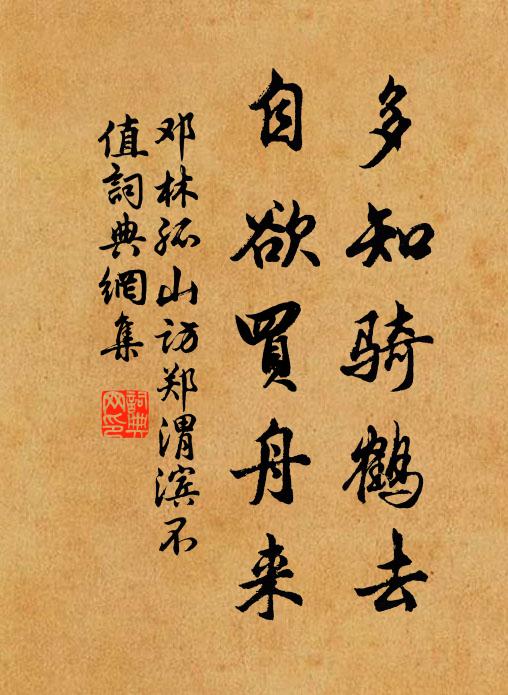 多知骑鹤去
自欲買舟来
邓林孤山访郑渭滨不
值詞典網集
詞典
网印